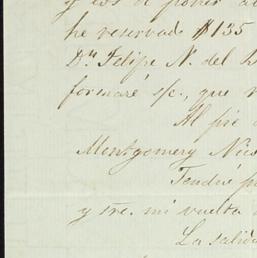 y los de poner a
he reservado $135
Dn. Felipe N. del
formaré s/c., que
Al pié
Montgomery Nic
Tendré
y tre. mi vuelta
La salida